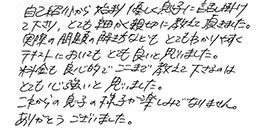 自己紹介から始まり優しく息子に色々掛けて
下さり、とても細かく親切に教えて頂きました。
実際の問題の解き方などもとてもわかりやすく
テキストにおいても とても良いと思いました。
料金も良心的で ここまで 教えて下さるのは
とても心強いと 思いました。
これからの 息子の 様子が楽しみでなりません。
ありがとう ございました。